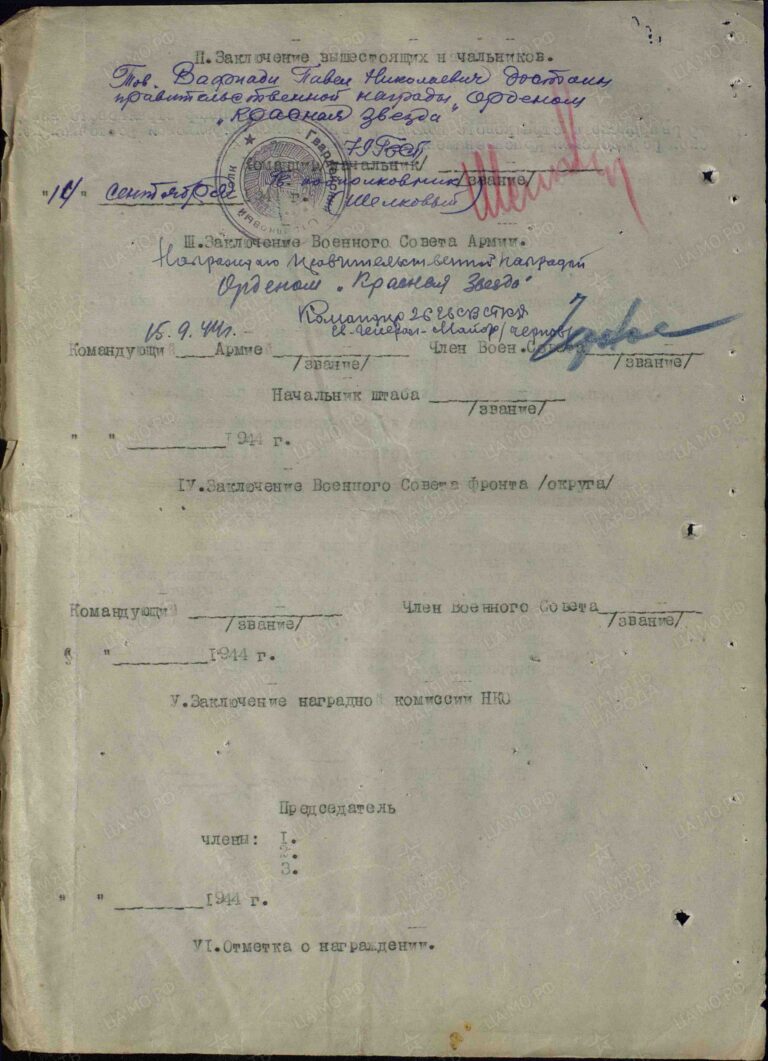 II.Заключение вышестоящих начальников.
Тов. Вафиади Павел Николаевич достоин
правительственной награды „Орденом
„Красная Звезда"
79 ГвСП
Командир /начальник/
Гв. подполковник /звание/
"14" сентября
/Шелковый/
III.Заключение Военного Совета Армии.
Награждаю правительственной наградой
Орденом „Красная Звезда"
Командир 26 Гв СВСТКЯ
15.9.44г. Гв. генерал-майор /Чернов/
Командующий ____Армией ____________ Член Воен.Совета____________
/звание/ /звание/
Начальник штаба _______________
/звание/
" " ___________1944 г.
IV.Заключение Военного Совета фронта /округа/
Командующий _________________ Член Военного Совета____________
/звание/ /звание/
" ___________1944 г.
V.Заключение наградной комиссии НКО
Председатель
члены: I.
2.
3.
" " __________1944 г.
VI.Отметка о награждении.